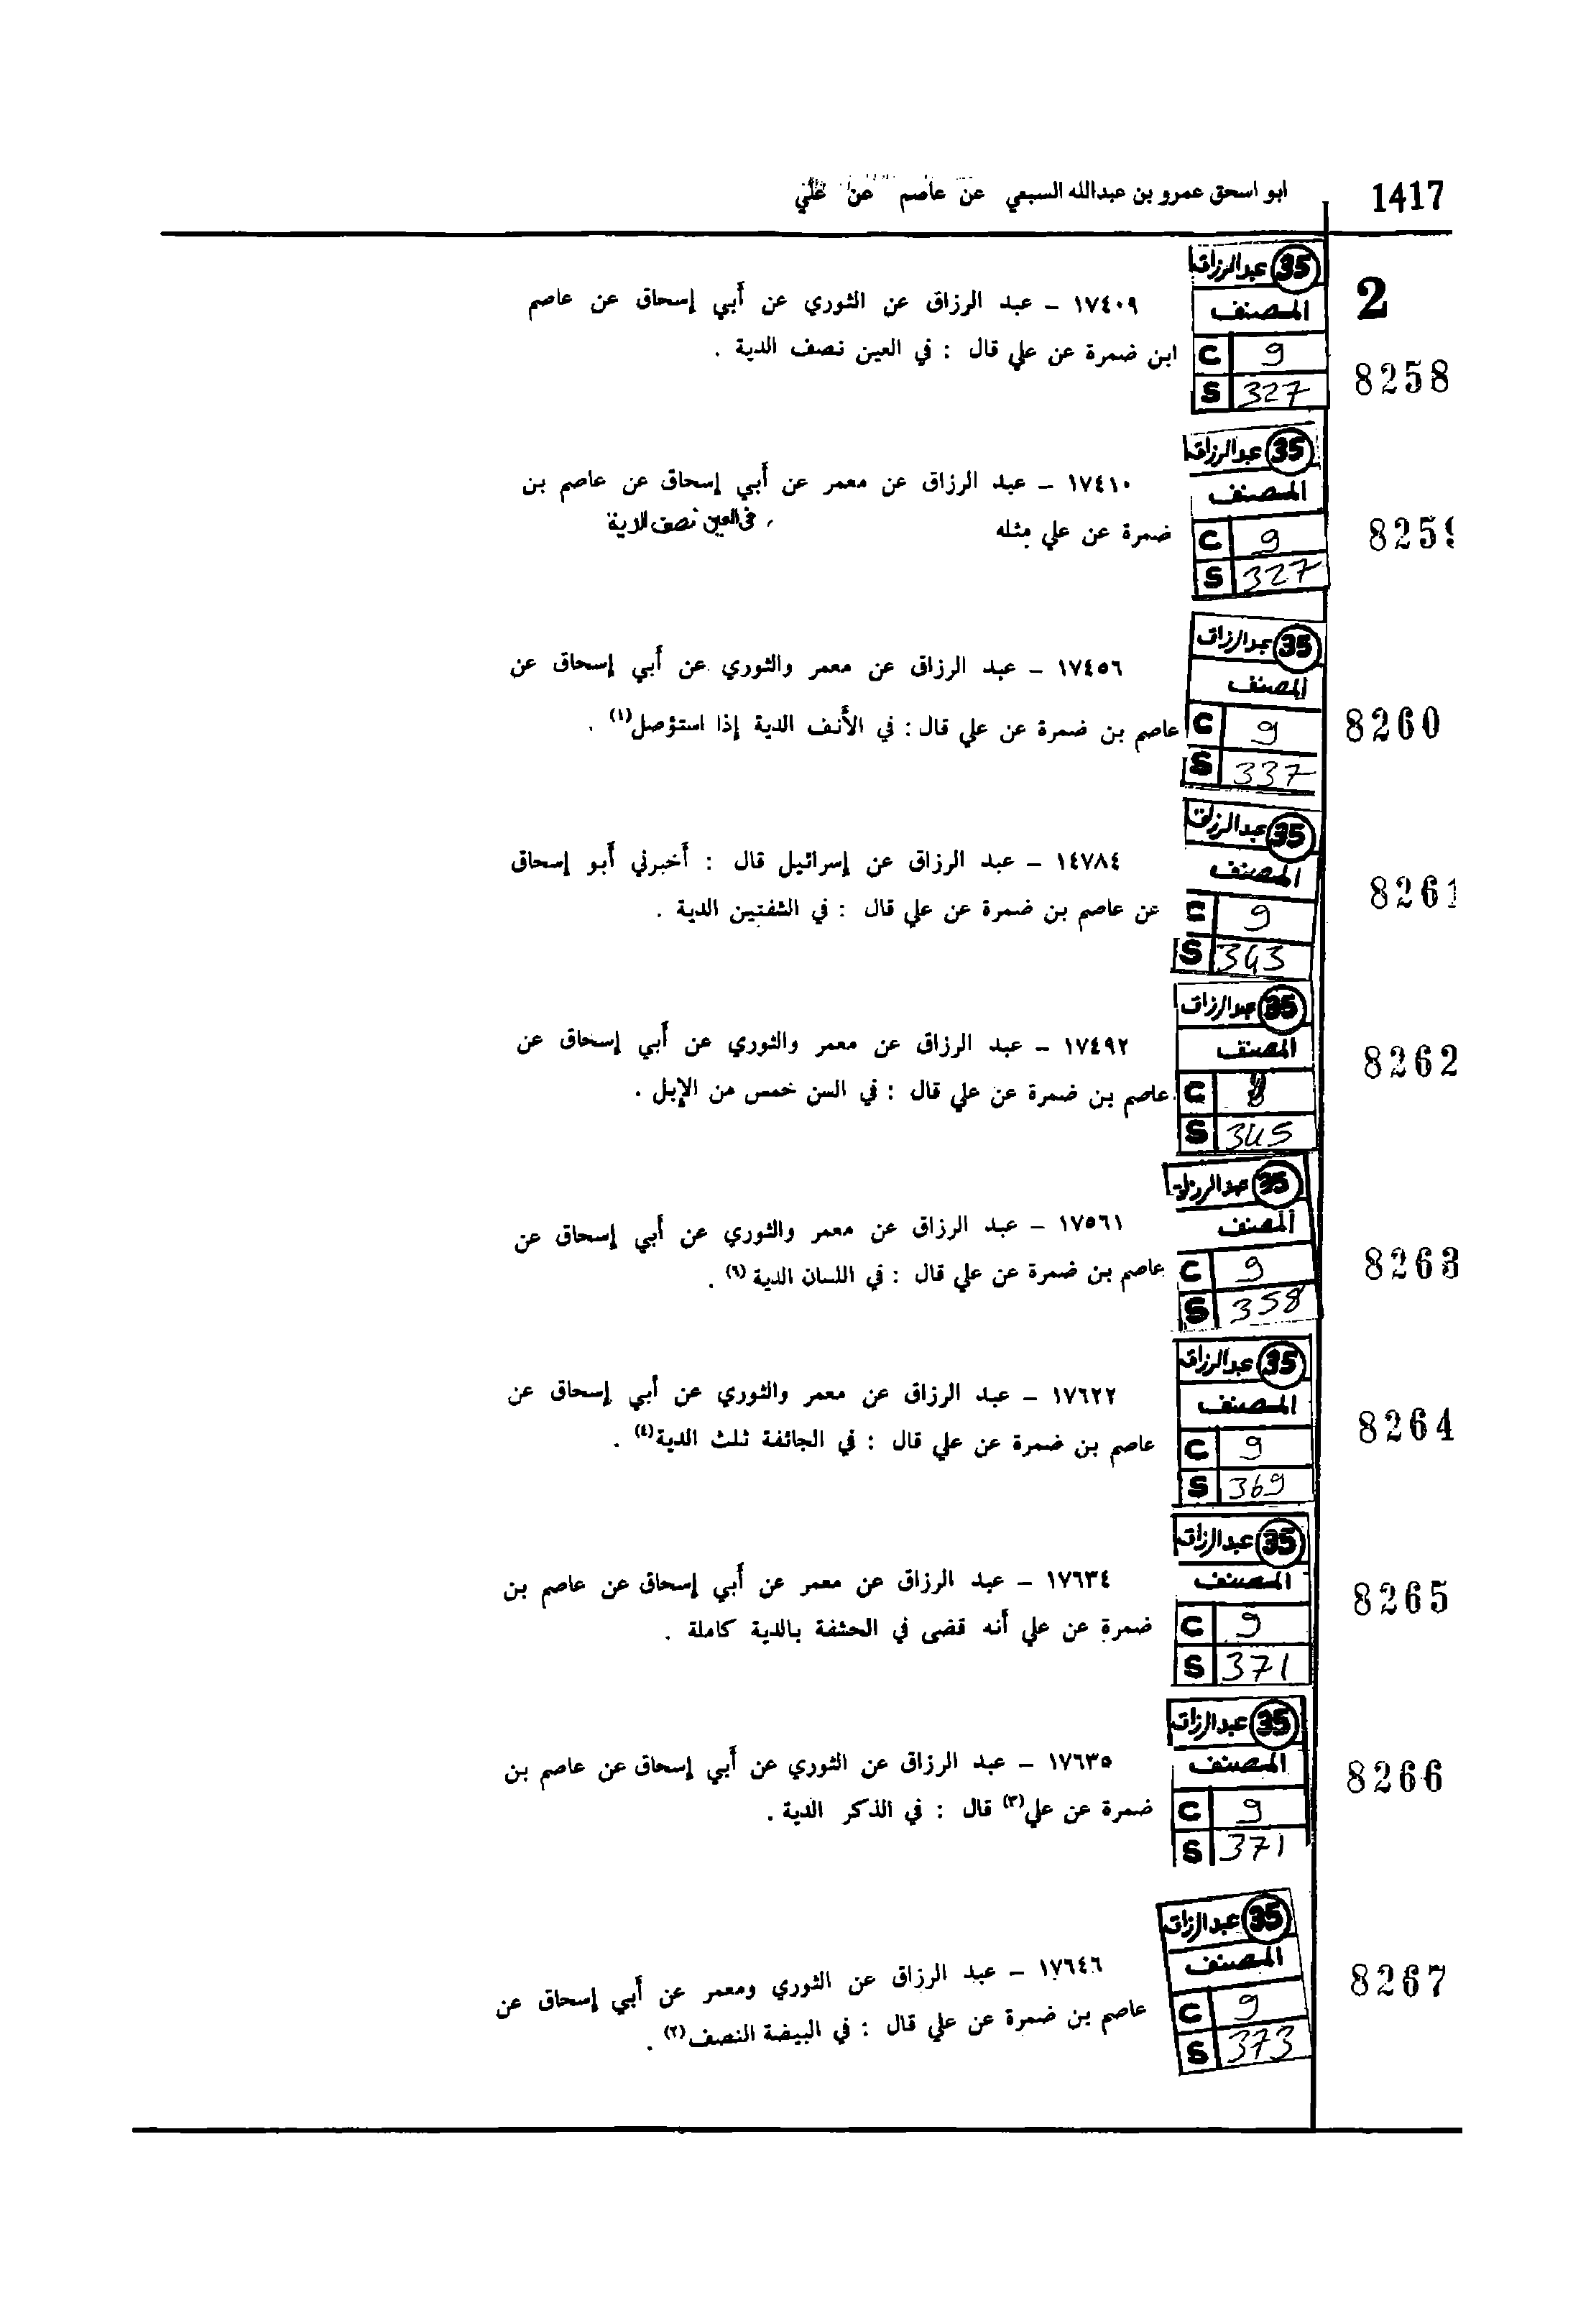 1417
ابو اسحق عمرو بن عبدالله السبعي عن عاصم عن علي
2
35 عبدالرزاق
المصنف
C 9
S 327
8258
١٧٤٠٩ – عبد الرزاق عن الثوري عن أبي إسحاق عن عاصم
ابن ضمرة عن علي قال : في العين نصف الدية .
35 عبدالرزاق
المصنف
C 9
S 327
8259
١٧٤١٠ – عبد الرزاق عن معمر عن أبي إسحاق عن عاصم بن
ضمرة عن علي مثله ، في العين نصف الدية
35 عبدالرزاق
المصنف
C 9
S 337
8260
١٧٤٥٦ – عبد الرزاق عن معمر والثوري عن أبي إسحاق عن
عاصم بن ضمرة عن علي قال : في الأنف الدية إذا استؤصل(١) .
35 عبدالرزاق
المصنف
C 9
S 343
8261
١٤٧٨٤ – عبد الرزاق عن إسرائيل قال : أخبرني أبو إسحاق
عن عاصم بن ضمرة عن علي قال : في الشفتين الدية .
35 عبدالرزاق
المصنف
C
S 345
8262
١٧٤٩٢ – عبد الرزاق عن معمر والثوري عن أبي إسحاق عن
عاصم بن ضمرة عن علي قال : في السن خمس من الإبل .
35 عبدالرزاق
المصنف
C 9
S 358
8263
١٧٥٦١ – عبد الرزاق عن معمر والثوري عن أبي إسحاق عن
عاصم بن ضمرة عن علي قال : في اللسان الدية (٦) .
35 عبدالرزاق
المصنف
C 9
S 369
8264
١٧٦٢٢ – عبد الرزاق عن معمر والثوري عن أبي إسحاق عن
عاصم بن ضمرة عن علي قال : في الجائفة ثلث الدية(٤) .
35 عبدالرزاق
المصنف
C 9
S 371
8265
١٧٦٣٤ – عبد الرزاق عن معمر عن أبي إسحاق عن عاصم بن
ضمرة عن علي أنه قضى في الحشفة بالدية كاملة .
35 عبدالرزاق
المصنف
C 9
S 371
8266
١٧٦٣٥ – عبد الرزاق عن الثوري عن أبي إسحاق عن عاصم بن
ضمرة عن علي(٣) قال : في الذكر الدية .
35 عبدالرزاق
المصنف
C 9
S 373
8267
١٧٦٤٦ – عبد الرزاق عن الثوري ومعمر عن أبي إسحاق عن
عاصم بن ضمرة عن علي قال : في البيضة النصف(٢) .